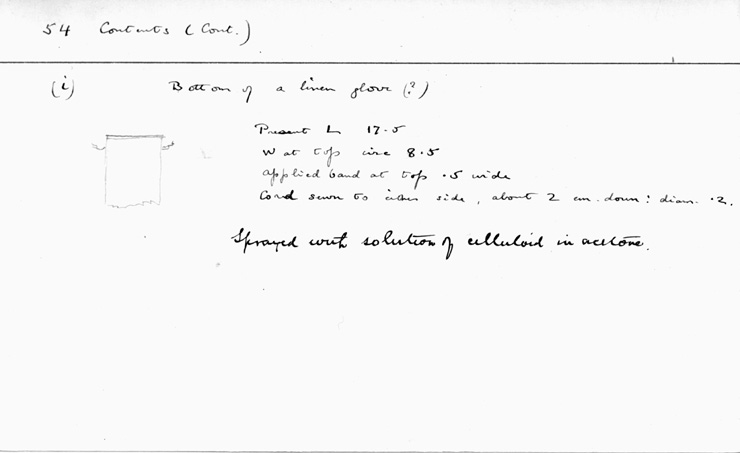 54 Contents (Cont.)
(i) Bottom of a linen glove (?)
Present L 17.5
W at top circ 8.5
applied band at top .5 wide
Cord sewn to either side, about 2 cm. down: diam. .2.
Sprayed with solution of celluloid in acetone.